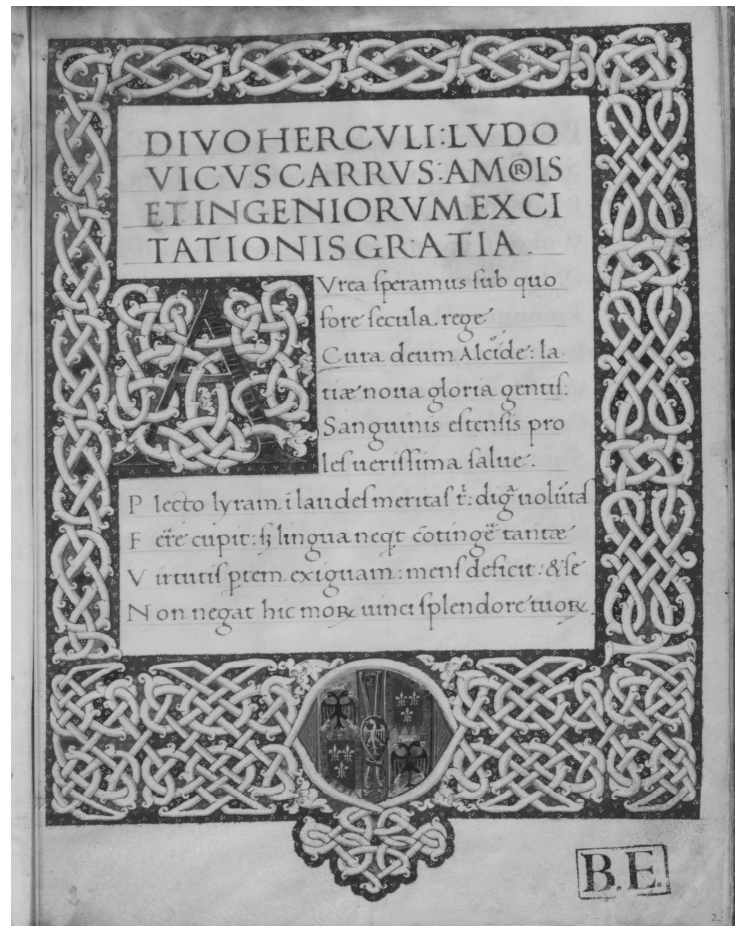 DIVO HERCVLI: LVDO
VICVS CARRVS: AMORIS
ET INGENIORVM EXCI
TATIONIS GRATIA.
AVrea speramus sub quo
fore secula rege
Cura deum Alcide: la
tiæ noua gloria gentis.
Sanguinis estensis pro
les uerissima salue.
P lecto lyram. i laudes meritas
F er̃e cupit: lingua neqt cõtingẽ tantæ
V irtutis ptem exiguam: mens deficit: & se
N on negat hic moꝝ uinci splendore tuoꝝ.
B.E.
2